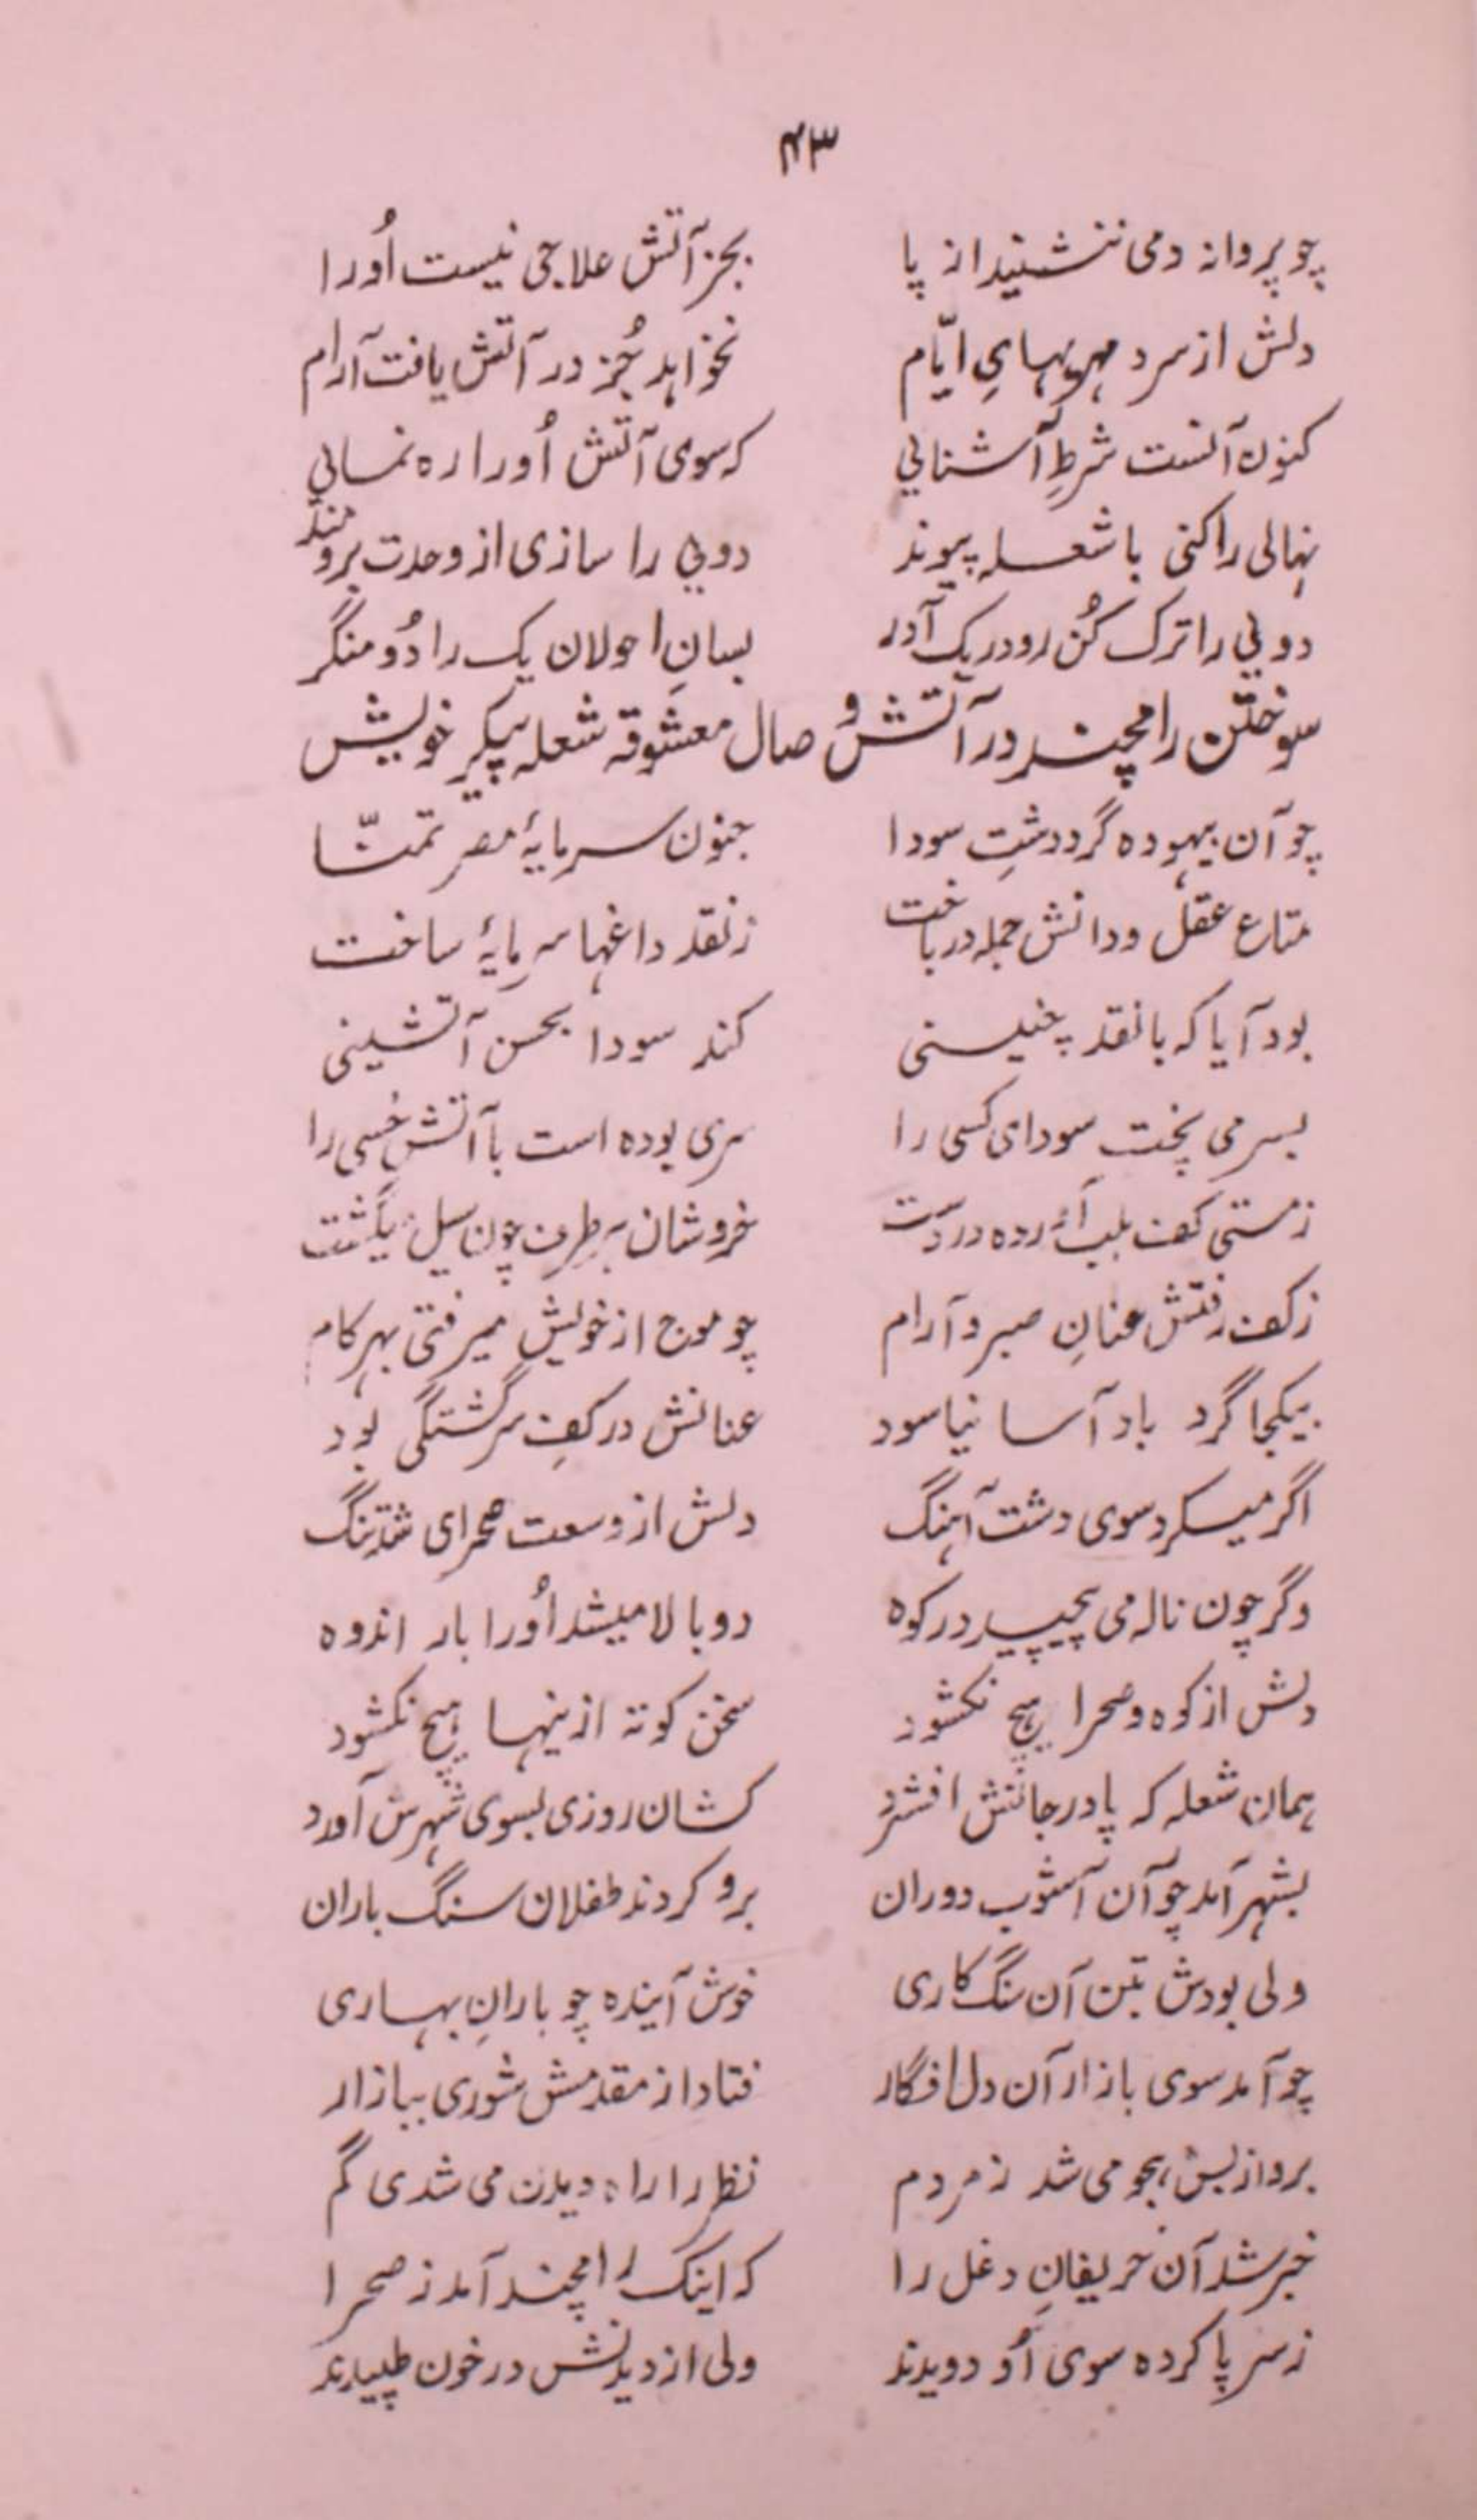 ۴۳
چو پروانه دمی ننشنید از پا بجز آتش علاجی نیست اُورا
دلش از سرد مهریهایِ ایّام نخواهد جُز در آتش یافت آرام
کنون آنست شرطِ آشنایي که سوی آتش اُورا ره نمایي
نهالی را کنی با شعله پیوند دویي را سازی از وحدت برومند
دویي را ترک کُن رو در یک آدر بسانِ احولان یک را دُو منگر
سوختن رامچند در آتش وصال معشوقه شعله پیکر خویش
چو آن بیهوده گرد دشتِ سودا جنون سرمایهٔ مصرِ تمنّا
متاع عقل و دانش جمله در باخت ز نقد داغها سرمایهٔ ساخت
بود آیا که با نقد چنینی کند سودا بحسن آتشینی
بسر می پخت سودای کسی را سری بوده است با آتش خسی را
ز مستی کف بلب آورده در دست خروشان هر طرف چون سیل میگشت
ز کف رفتش عنانِ صبر و آرام چو موج از خویش میرفتی بهر کام
بیکجا گرد باد آسا نیاسود عنانش در کفِ سرگشتگی بود
اگر میکرد سوی دشت آهنگ دلش از وسعت صحرای شد تنگ
وگر چون ناله می پیچید در کوه دوبالا میشد اُورا بار اندوه
دلش از کوه و صحرا هیچ نکشود سخن کوته ازینها هیچ نکشود
همان شعله که پا در جانش افشرد کشان روزی بسوی شهرش آورد
بشهر آمد چو آن آشوب دوران برو کردند طفلان سنگ باران
ولی بودش بتن آن سنگ کاری خوش آینده چو بارانِ بهاری
چو آمد سوی بازار آن دل افگار فتاد از مقدمش شوری ببازار
برو از بس هجو می شد ز مردم نظر را راه دیدن می شدی گم
خبر شد آن حریفانِ دغل را که اینک رامچند آمد ز صحرا
ز سر پا کرده سوی اُو دویدند ولی از دیدنش در خون طپیدند